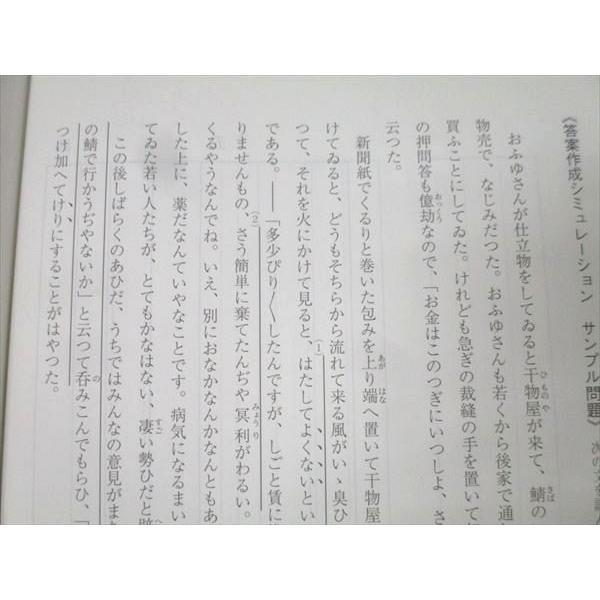 《答案作成シミュレーション サンプル問題》 次の文を読
おふゆさんが仕立物をしてゐると干物屋が来て、鯖の
物売で、なじみだつた。おふゆさんも若くから後家で通
買ふことにしてゐた。けれども急ぎの裁縫の手を置いて
の押問答も億劫なので、「お金はこのつぎにいつしよ、さ
云つた。
新聞紙でくるりと巻いた包みを上り端へ置いて干物屋
けてゐると、どうもそちらから流れて来る風がいゝ臭ひ
つて、それを火にかけて見ると、はたしてよくないとい
である。――「多少ぴり〳〵したんですが、しごと賃に
りませんもの、さう簡単に棄てたんぢや冥利がわるい。
くるやうなんでね。いえ、別におなかなんかなんともあ
した上に、薬だなんていやなことです。病気になるまい
てゐた若い人たちが、とてもかなはない、凄い勢ひだと
この後しばらくのあひだ、うちではみんなの意見がま
の鯖で行かうぢやないか」と云つて呑みこんでもらひ、「
つけ加へてけりにすることがはやつた。